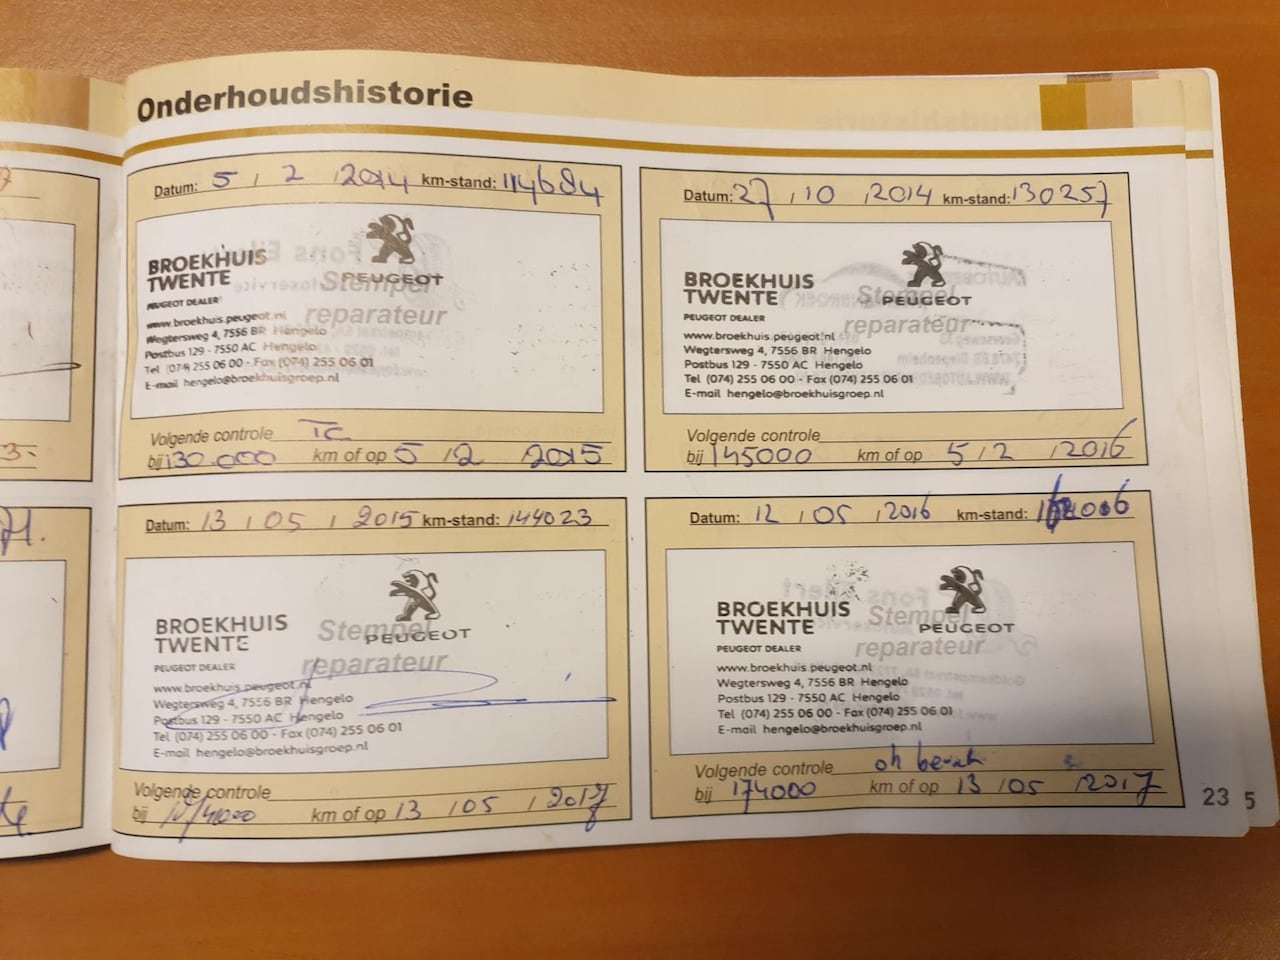 Onderhoudshistorie
Datum: 5 / 2 / 2014 km-stand: 114684
BROEKHUIS
TWENTE
PEUGEOT
PEUGEOT DEALER
Stempel
reparateur
www.broekhuis.peugeot.nl
Wegtersweg 4, 7556 BR Hengelo
Postbus 129 - 7550 AC Hengelo
Tel (074) 255 06 00 - Fax (074) 255 06 01
E-mail hengelo@broekhuisgroep.nl
Volgende controle TC
bij 130.000 km of op 5 / 2 2015
Datum: 27 / 10 / 2014 km-stand: 130257
BROEKHUIS
TWENTE
PEUGEOT
PEUGEOT DEALER
Stempel
reparateur
www.broekhuis.peugeot.nl
Wegtersweg 4, 7556 BR Hengelo
Postbus 129 - 7550 AC Hengelo
Tel (074) 255 06 00 - Fax (074) 255 06 01
E-mail hengelo@broekhuisgroep.nl
Volgende controle
bij 145000 km of op 5 / 2 / 2016
Datum: 13 / 05 / 2015 km-stand: 144023
BROEKHUIS
TWENTE
PEUGEOT
PEUGEOT DEALER
Stempel
reparateur
www.broekhuis.peugeot.nl
Wegtersweg 4, 7556 BR Hengelo
Postbus 129 - 7550 AC Hengelo
Tel (074) 255 06 00 - Fax (074) 255 06 01
E-mail hengelo@broekhuisgroep.nl
Volgende controle
bij km of op 13 / 05 / 2017
Datum: 12 / 05 / 2016 km-stand:
BROEKHUIS
TWENTE
PEUGEOT
PEUGEOT DEALER
Stempel
reparateur
www.broekhuis.peugeot.nl
Wegtersweg 4, 7556 BR Hengelo
Postbus 129 - 7550 AC Hengelo
Tel (074) 255 06 00 - Fax (074) 255 06 01
E-mail hengelo@broekhuisgroep.nl
Volgende controle
bij 174000 km of op 13 / 05 / 2017
23
5